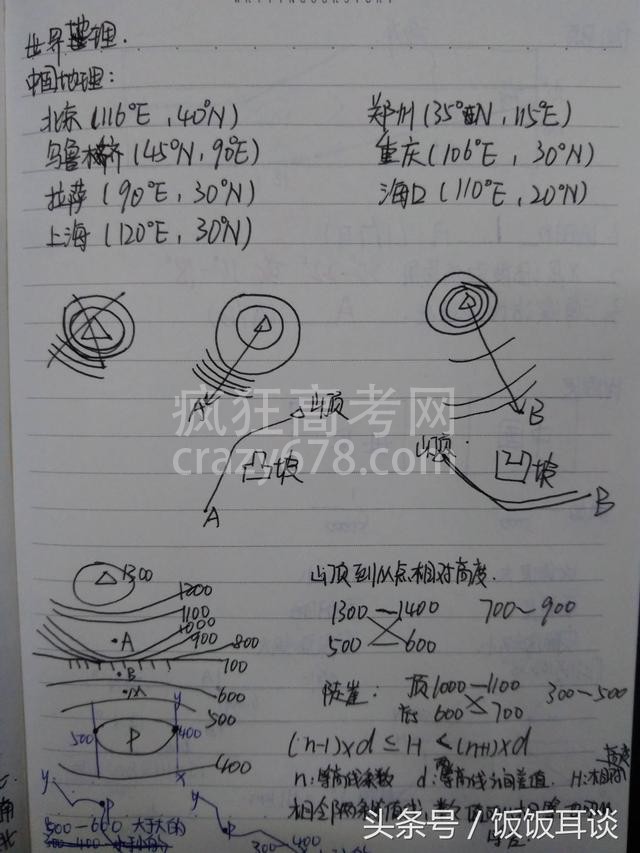 世界地理.
中国地理:
北京(116°E, 40°N) 郑州(35°N, 115°E)
乌鲁木齐(45°N, 90°E) 重庆(106°E, 30°N)
拉萨(90°E, 30°N) 海口(110°E, 20°N)
上海(120°E, 30°N)
疯狂高考网
crazy678.com
A B
山顶 山顶
凸坡 凹坡
A B
1300 山顶到M点相对高度.
1200
1100 1300—1400 700~900
1000
A 900 800 500 600
700
B
M 600 陡崖: 顶1000—1100 300—500
y 500 底600 700
500 P 400
(n-1)×d ≤ H < (n+1)×d
400 x n:等高线条数 d:等高线间差值. H:相对高度
y P
500-600 大于大的
300 400
头条号 / 饭饭耳谈